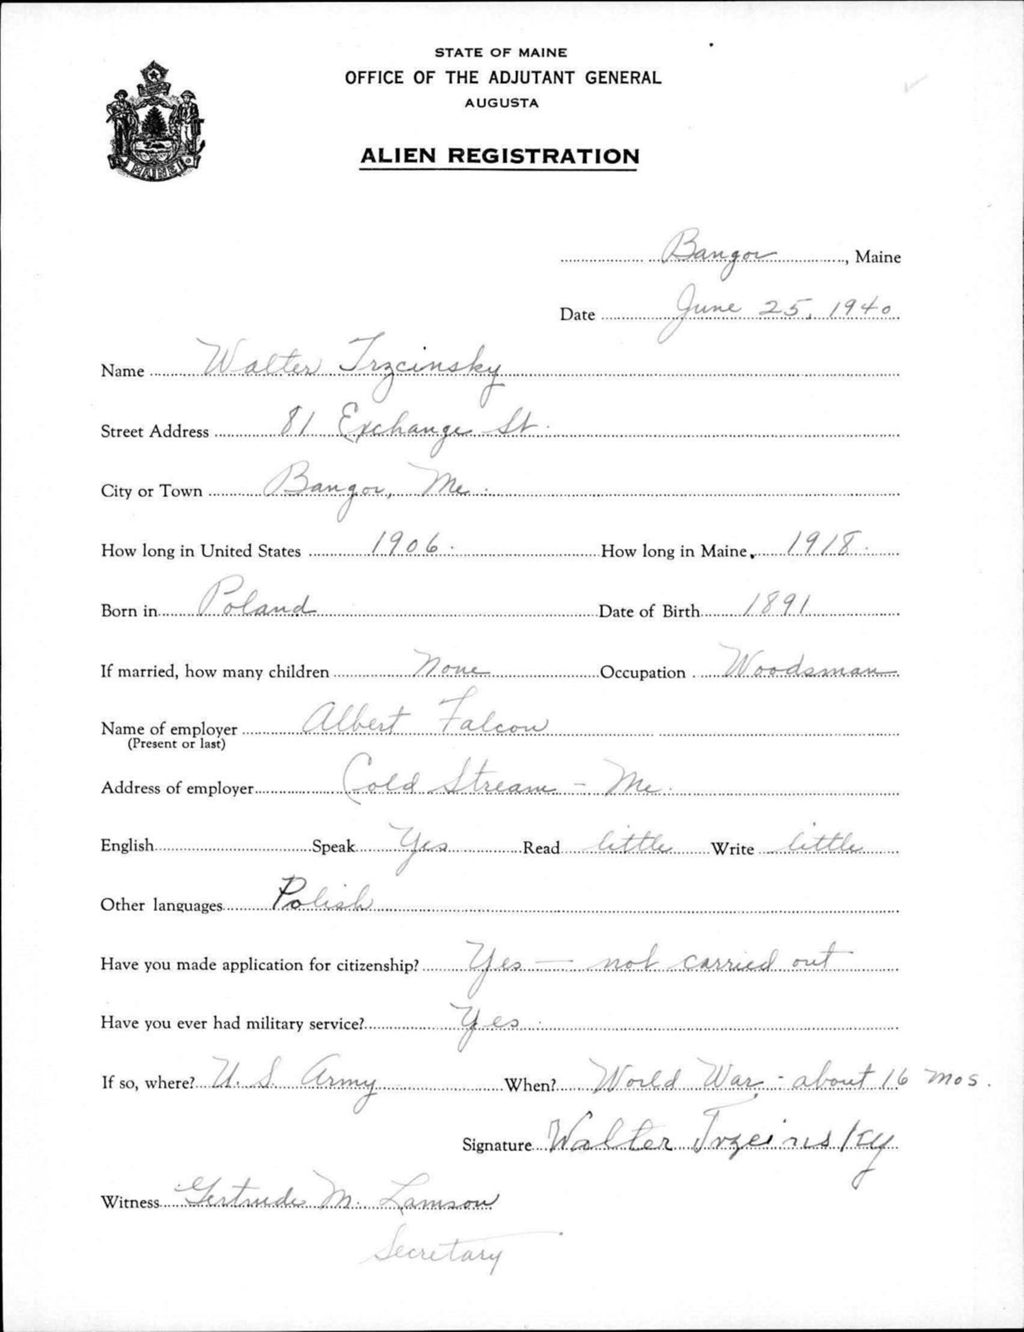 STATE OF MAINE
OFFICE OF THE ADJUTANT GENERAL
AUGUSTA
ALIEN REGISTRATION
Bangor, Maine
Date June 25, 1940
Name Walter Trzcinsky
Street Address 81 Exchange St.
City or Town Bangor, Me.
How long in United States 1906. How long in Maine, 1918.
Born in Poland Date of Birth 1891
If married, how many children None Occupation Woodsman
Name of employer Albert Falcon
(Present or last)
Address of employer Cold Stream - Me.
English Speak Yes Read little Write little
Other languages Polish
Have you made application for citizenship? Yes — not carried out
Have you ever had military service? Yes.
If so, where? U. S. Army When? World War - about 16 mos.
Signature Walter Trzcinsky
Witness Gertrude M. Lamson
Secretary